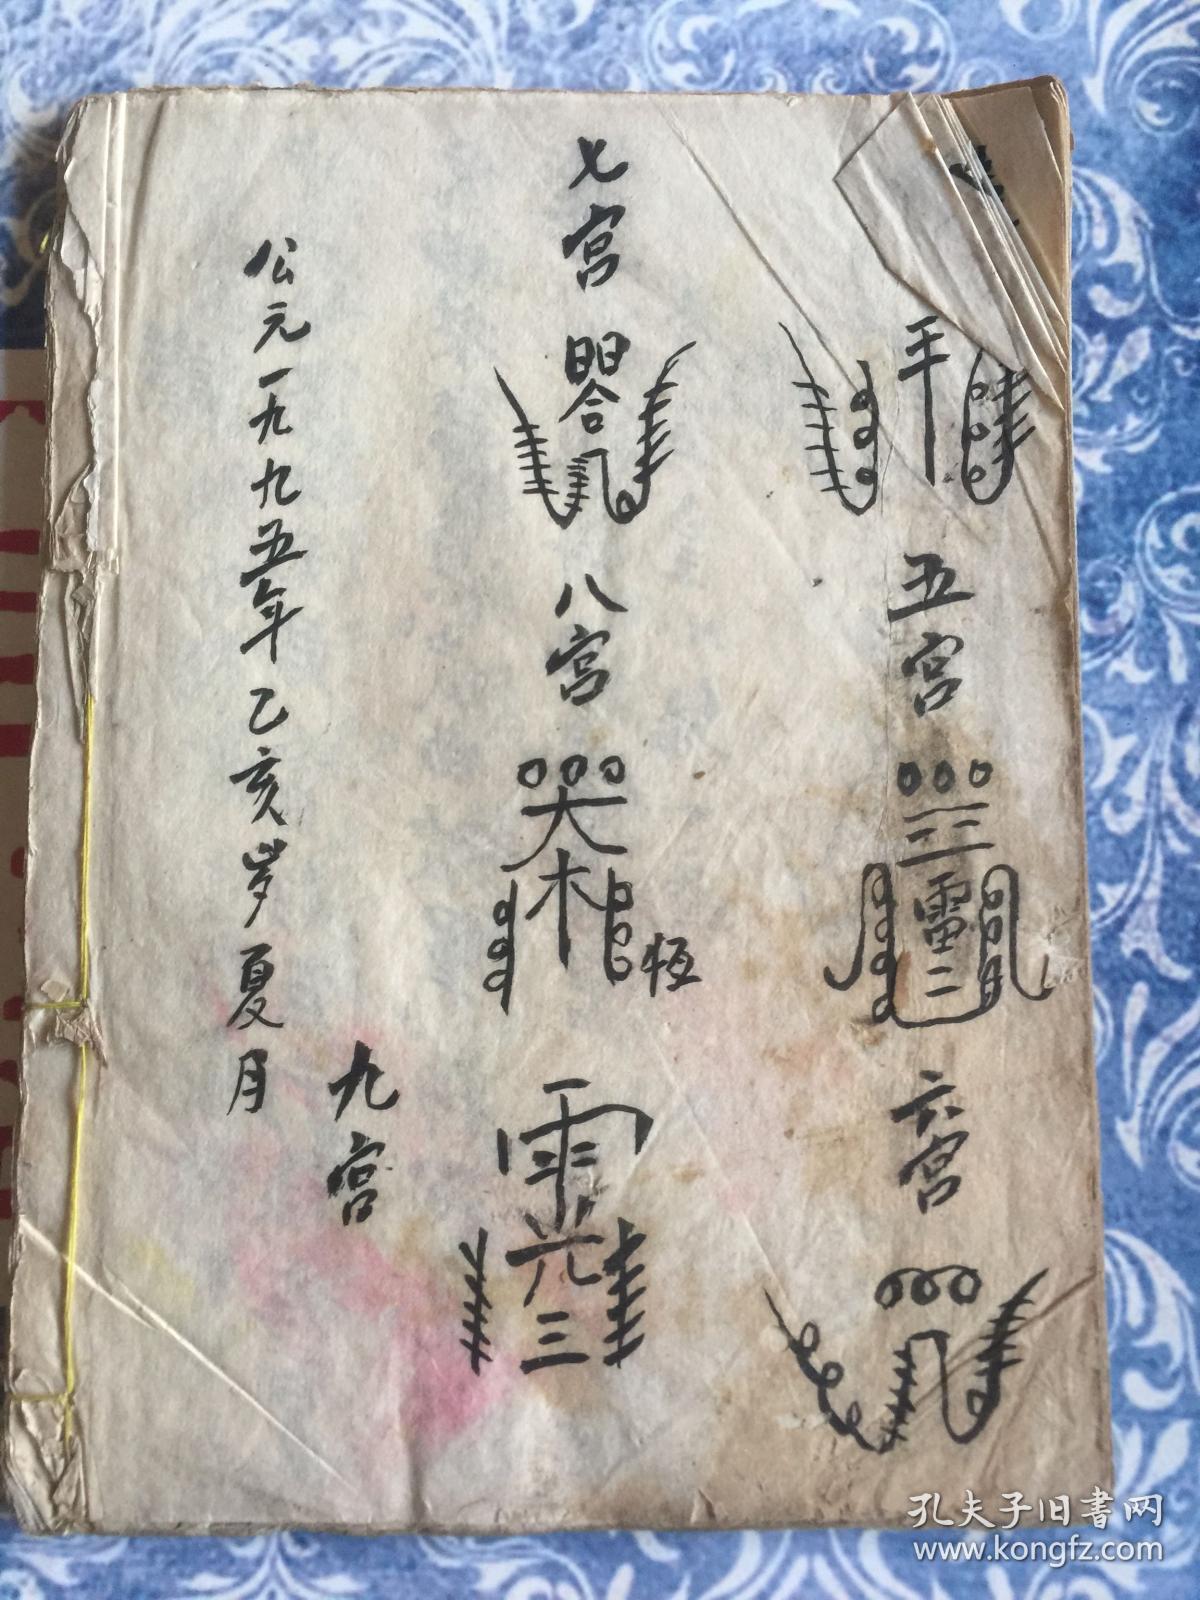 五宫
雷
二
六宫
七宫
八宫
恒
九宫
三
公元一九九五年乙亥岁夏月
孔夫子旧書网
www.kongfz.com